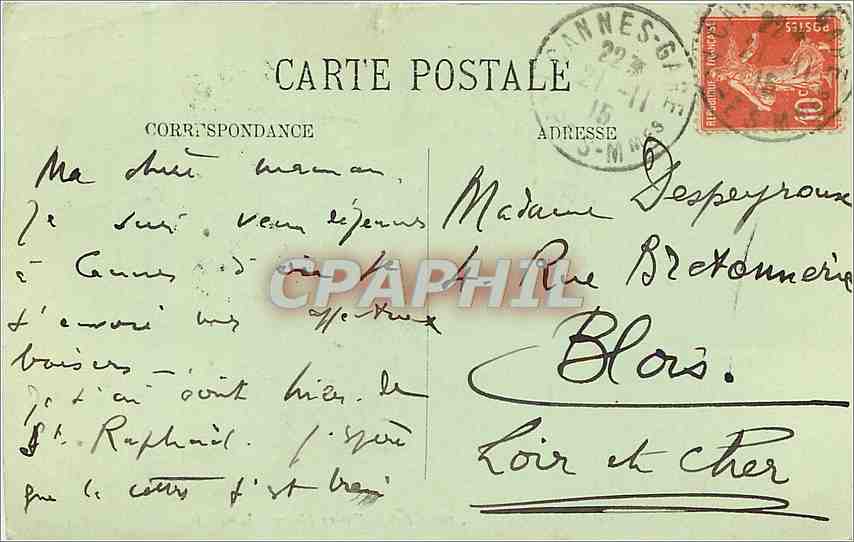 CARTE POSTALE
CORRESPONDANCE
Ma chère maman,
Je suis venu déjeuner
à Cannes d'où je
t'envoie mes affectueux
baisers –
Je t'ai écrit hier de
St. Raphaël. J'espère
que la carte t'est
ADRESSE
Madame Despeyroux
4 Rue Bretonnerie
Blois.
Loir et Cher
CANNES-GARE
22
21-11
15
S-MMES
REPUBLIQUE FRANÇAISE
POSTES
10c
CPAPHIL